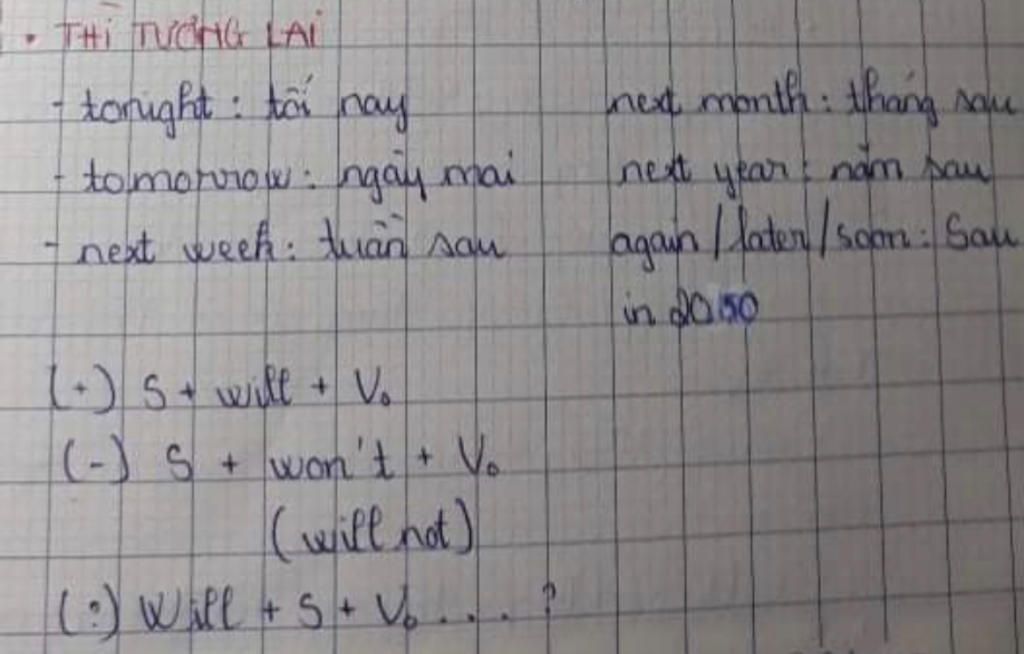 • THÌ TƯƠNG LAI
- tonight : tối nay
- tomorrow : ngày mai
- next week : tuần sau
next month : tháng sau
next year : năm sau
again / later / soon : Sau
in 2050
(+) S + will + V₀
(-) S + won't + V₀
(will not)
(?) Will + S + V₀ . . . . ?